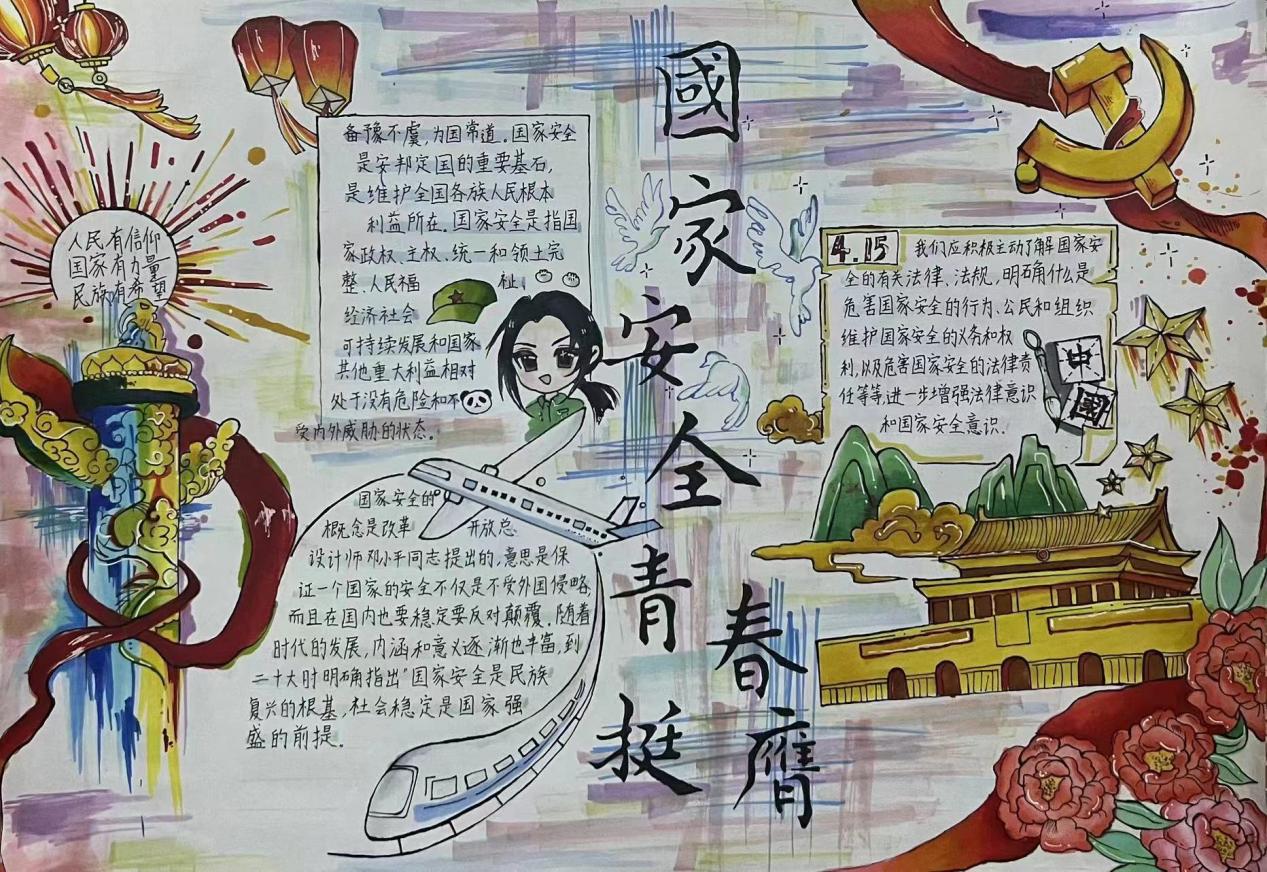 國家安全
青春挺膺
人民有信仰
国家有力量
民族有希望
备豫不虞,为国常道。国家安全
是安邦定国的重要基石,
是维护全国各族人民根本
利益所在。国家安全是指国
家政权、主权、统一和领土完
整、人民福祉、
经济社会
可持续发展和国家
其他重大利益相对
处于没有危险和不
受内外威胁的状态。
国家安全的
概念是改革开放总
设计师邓小平同志提出的,意思是保
证一个国家的安全不仅是不受外国侵略,
而且在国内也要稳定要反对颠覆。随着
时代的发展,内涵和意义逐渐也丰富,到
二十大时明确指出“国家安全是民族
复兴的根基,社会稳定是国家强
盛的前提。
4.15 我们应积极主动了解国家安
全的有关法律、法规,明确什么是
危害国家安全的行为、公民和组织
维护国家安全的义务和权
利,以及危害国家安全的法律责
任等等进一步增强法律意识
和国家安全意识.
中
國